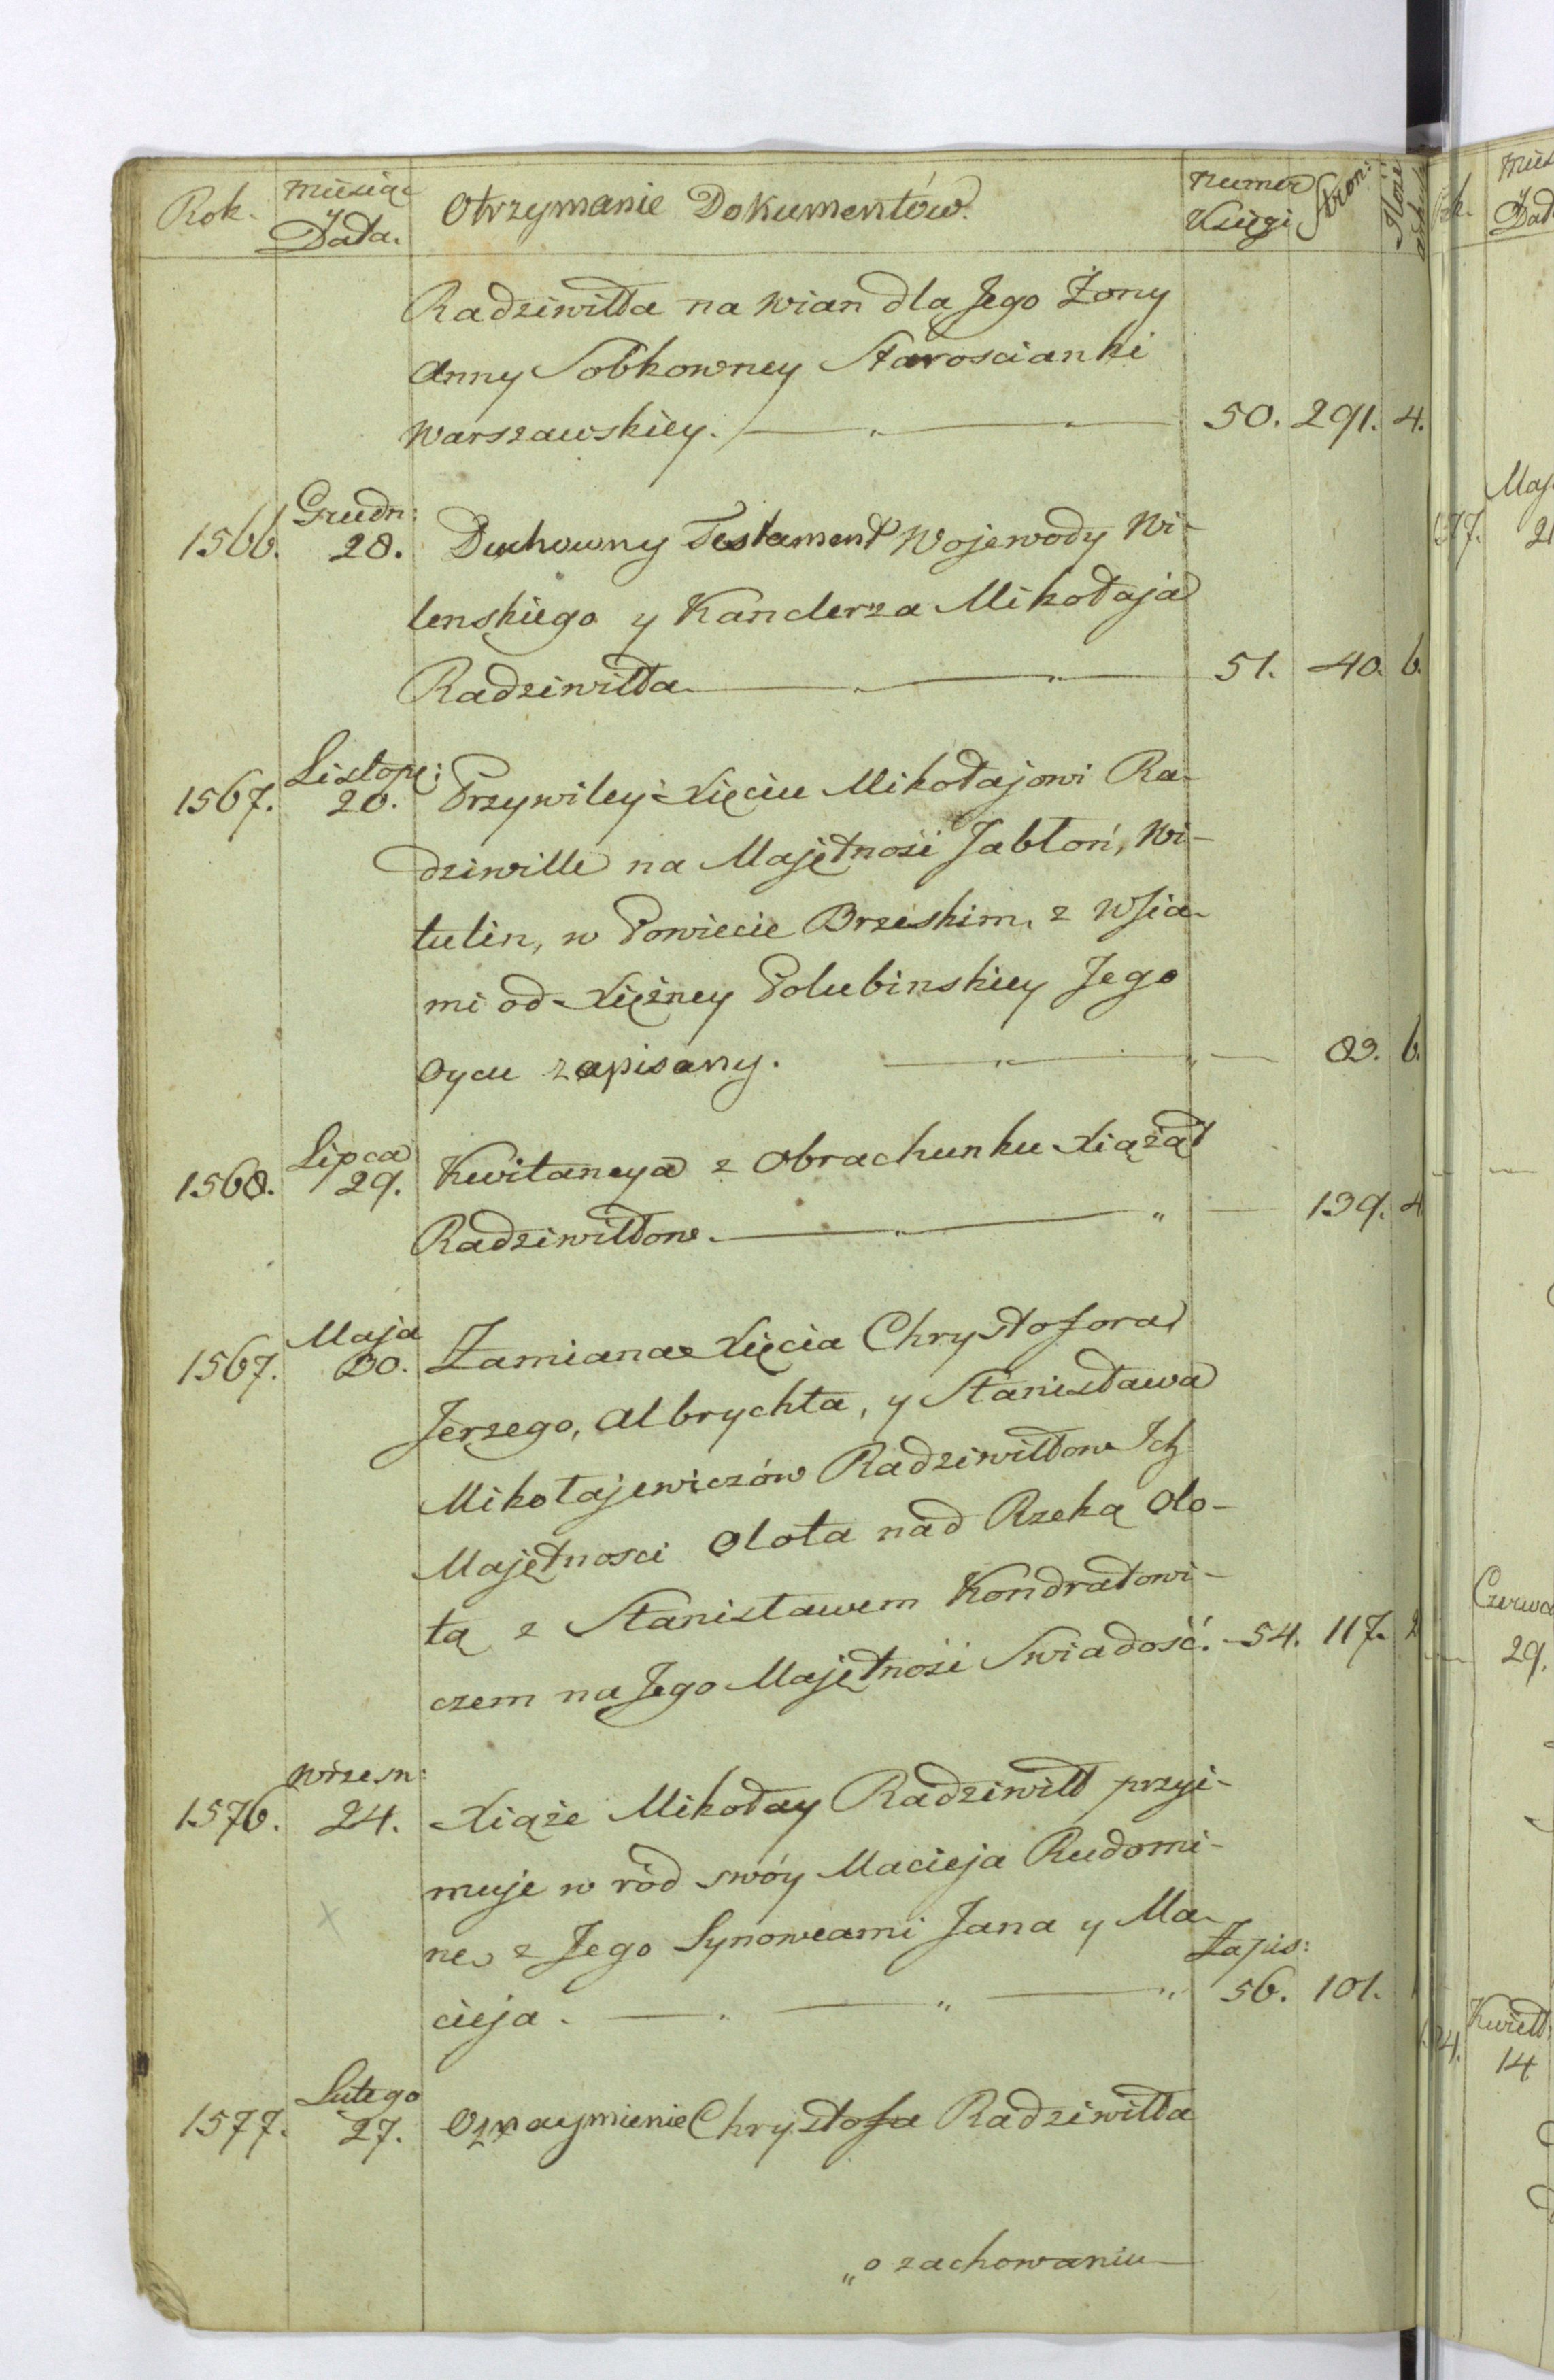 Rok. Miesiąc Otrzymanie Dokumentów. Numer Stron: Ilość
Data. Księgi
Radziwiłła na Wian dla Jego Żony
Anny Sobkowney Starościanki
Warszawskiey. 50. 291. 4.
Grudn:
1566. 28. Duchowny Testament Wojewody Wi-
lenskiego y Kanclerza Mikołaja
Radziwiłła 51. 40. 6.
Listop:
1567. 20. Przywiley Xięciu Mikołajowi Ra-
dziwille na Majętność Jabłoń, Wi-
tulin, w Powiecie Brzeskim, z Wsia-
mi od Xiężney Połubinskiey Jego
Oycu zapisany. 83. 6.
Lipca
1568. 29. Kwitancya z Obrachunku Xiążąt
Radziwiłłow. 139. 4
Maja
1567. 30. Zamiana Xięcia Chrystofora
Jerzego, Albrychta, y Stanisława
Mikołajewiczów Radziwiłłow Ich
Majętnosci Olota nad Rzeką Olo-
tą z Stanisławem Kondratowi-
czem na Jego Majętność Swiadość. 54. 117. 2
Wrzesn:
1576. 24. Xiąże Mikołay Radziwiłł przyi-
muje w ród swóy Macieja Rudomi-
ne z Jego Synowcami Jana y Ma- Zapis:
cieja. 56. 101.
Lutego
1577. 27. Oznaymienie Chrysztofa Radziwiłła
„o zachowaniu
577. Maj
Czerwca
29.
Kwiet:
14